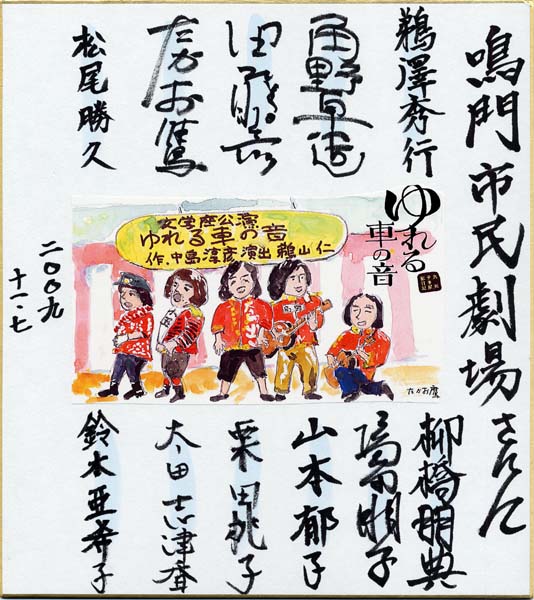 鳴門市民劇場さんに
鵜澤秀行
角野卓造
田村勝彦
たかお鷹
松尾勝久
ゆれる
車の音
九州
テキ屋
旅日記
文学座公演
ゆれる車の音
作.中島淳彦演出鵜山仁
たかお鷹
二〇〇九
十一・七
柳橋朋典
塩田朋子
山本郁子
栗田桃子
太田志津香
鈴木亜希子